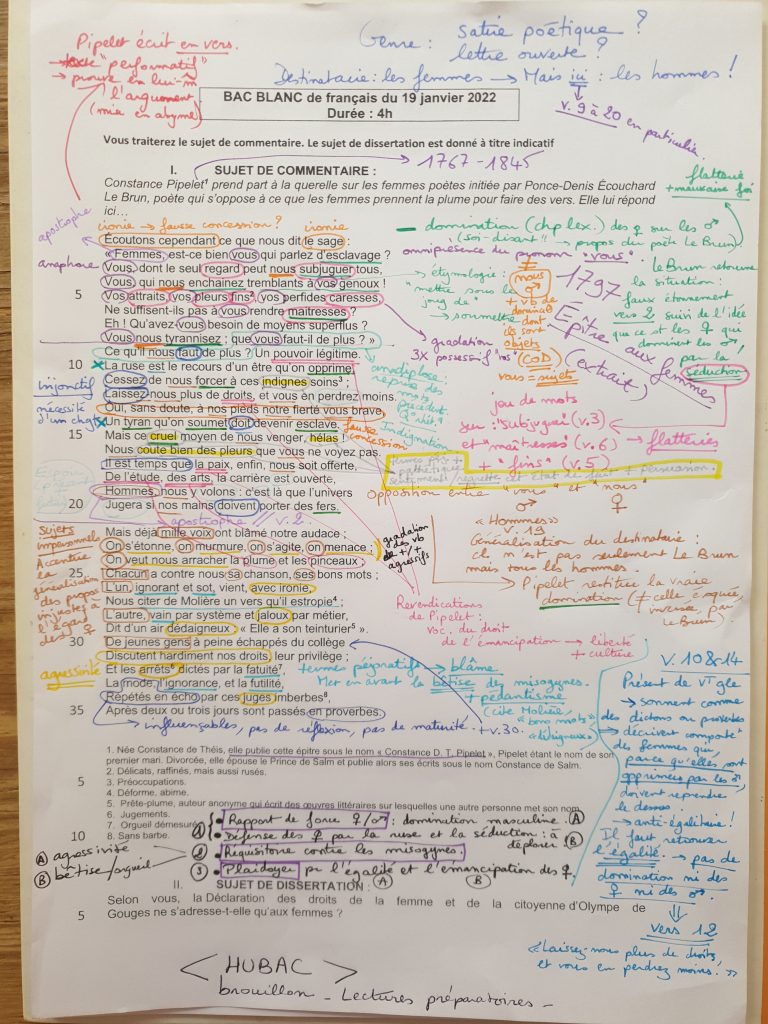 Pipelet écrit en vers.
→ texte "performatif"
→ prouve en lui-m̂
l'argument
(mise en abyme)
Genre : satire poétique ?
lettre ouverte ?
Destinataire : les femmes → Mais ici : les hommes !
v. 9 à 20 en particulier.
BAC BLANC de français du 19 janvier 2022
Durée : 4h
Vous traiterez le sujet de commentaire. Le sujet de dissertation est donné à titre indicatif
I. SUJET DE COMMENTAIRE :
→ 1767 - 1845
flatterie
+ mauvaise foi
Constance Pipelet¹ prend part à la querelle sur les femmes poètes initiée par Ponce-Denis Écouchard
Le Brun, poète qui s'oppose à ce que les femmes prennent la plume pour faire des vers. Elle lui répond
ici…
apostrophe
ironie → fausse concession ? ironie
Écoutons cependant ce que nous dit le sage :
« Femmes, est-ce bien vous qui parlez d'esclavage ?
anaphore
Vous, dont le seul regard peut nous subjuguer tous,
Vous, qui nous enchaînez tremblants à vos genoux !
5 Vos attraits, vos pleurs fins², vos perfides caresses,
Ne suffisent-ils pas à vous rendre maîtresses ?
Eh ! Qu'avez-vous besoin de moyens superflus ?
Vous nous tyrannisez ; que vous faut-il de plus ? »
Ce qu'il nous faut de plus ? Un pouvoir légitime.
10 La ruse est le recours d'un être qu'on opprime.
Cessez de nous forcer à ces indignes soins³ ;
Laissez-nous plus de droits, et vous en perdrez moins.
Oui, sans doute, à nos pieds notre fierté vous brave,
Un tyran qu'on soumet doit devenir esclave.
15 Mais ce cruel moyen de nous venger, hélas !
Nous coute bien des pleurs que vous ne voyez pas.
Il est temps que la paix, enfin, nous soit offerte.
De l'étude, des arts, la carrière est ouverte,
Hommes, nous y volons : c'est là que l'univers
20 Jugera si nos mains doivent porter des fers.
apostrophe // v. 2
Mais déjà mille voix ont blâmé notre audace ;
On s'étonne, on murmure, on s'agite, on menace ;
On veut nous arracher la plume et les pinceaux ;
25 Chacun a contre nous sa chanson, ses bons mots ;
L'un, ignorant et sot, vient, avec ironie,
Nous citer de Molière un vers qu'il estropie⁴ ;
L'autre, vain par système et jaloux par métier,
Dit d'un air dédaigneux : « Elle a son teinturier⁵ ».
30 De jeunes gens à peine échappés du collège
Discutent hardiment nos droits, leur privilège ;
Et les arrêts⁶ dictés par la fatuité⁷,
La mode, l'ignorance, et la futilité,
Répétés en écho par ces juges imberbes⁸,
35 Après deux ou trois jours sont passés en proverbes.
→ influençables, pas de réflexion, pas de maturité. + v.30.
Injonctif
nécessité
Sujets
impersonnels
Accentue
la
généralisation
des propos
injustes à
l'égard
des ♀
agressivité
domination (chp lex.) des ♀ sur les ♂
(soi-disant !! → propos du poète Le Brun)
omniprésence du pronom "vous"
→ étymologie :
"mettre sous le
joug de"
→ soumettre
≠
nous
+ vb de
domina°
dont
ils sont
objets
(COD)
vous = sujets
gradation
3X possessif "vos"
1797
Épître aux femmes
(extrait)
Le Brun retourne
la situation :
faux étonnement
vers 2 suivi de l'idée
que ce st les ♀ qui
dominent les ♂,
par la
séduction
anadiplose :
reprise des
mots
Indignation
fausse
concession
jeu de mots
sur "subjuguer" (v.3)
et "maîtresses" (v.6) → flatteries
+ "fins" (v.5)
pathétique
sentiments / regrette cet état de fait + persuasion.
Opposition entre "vous" et "nous"
♂ ♀
« Hommes »
v. 19
Généralisation du destinataire :
ce n'est pas seulement Le Brun
mais tous les hommes.
→ Pipelet restitue la vraie
domination (≠ celle évoquée,
inverse, par
Le Brun)
gradation
des vb
de + / +
agressifs
Revendications
de Pipelet :
voc. du droit
de l'émancipation → liberté
+ culture
+ termes péjoratifs → blâme
Met en avant la bêtise des misogynes.
+ pédantisme
(cite Molière,
"bons mots"
v. 10 & 14
Présent de vт gle
→ sonnent comme
des dictons ou proverbes
→ décrivent comportᵗ
des femmes qui,
parce qu'elles sont
opprimées par les ♂,
doivent reprendre
le dessus.
→ anti-égalitaire !
Il faut retrouver
l'égalité. → pas de
domination ni des
♀ ni des ♂.
⇓
vers 12
« Laissez-nous plus de droits,
et vous en perdrez moins. »
1. Née Constance de Théis, elle publie cette épitre sous le nom « Constance D. T. Pipelet », Pipelet étant le nom de son
premier mari. Divorcée, elle épouse le Prince de Salm et publie alors ses écrits sous le nom Constance de Salm.
2. Délicats, raffinés, mais aussi rusés.
5 3. Préoccupations.
4. Déforme, abime.
5. Prête-plume, auteur anonyme qui écrit des œuvres littéraires sur lesquelles une autre personne met son nom.
6. Jugements.
7. Orgueil démesuré.
10 8. Sans barbe.
① • Rapport de force ♀/♂ : domination masculine. Ⓐ
• Défense des ♀ par la ruse et la séduction : à
déplorer. Ⓑ
② • Réquisitoire contre les misogynes.
③ • Plaidoyer pr l'égalité et l'émancipation des ♀.
Ⓐ Ⓑ
Ⓐ agressivité
Ⓑ bêtise / orgueil
II. SUJET DE DISSERTATION :
Selon vous, la Déclaration des droits de la femme et de la citoyenne d'Olympe de
5 Gouges ne s'adresse-t-elle qu'aux femmes ?
< HUBAC >
brouillon - Lectures préparatoires -